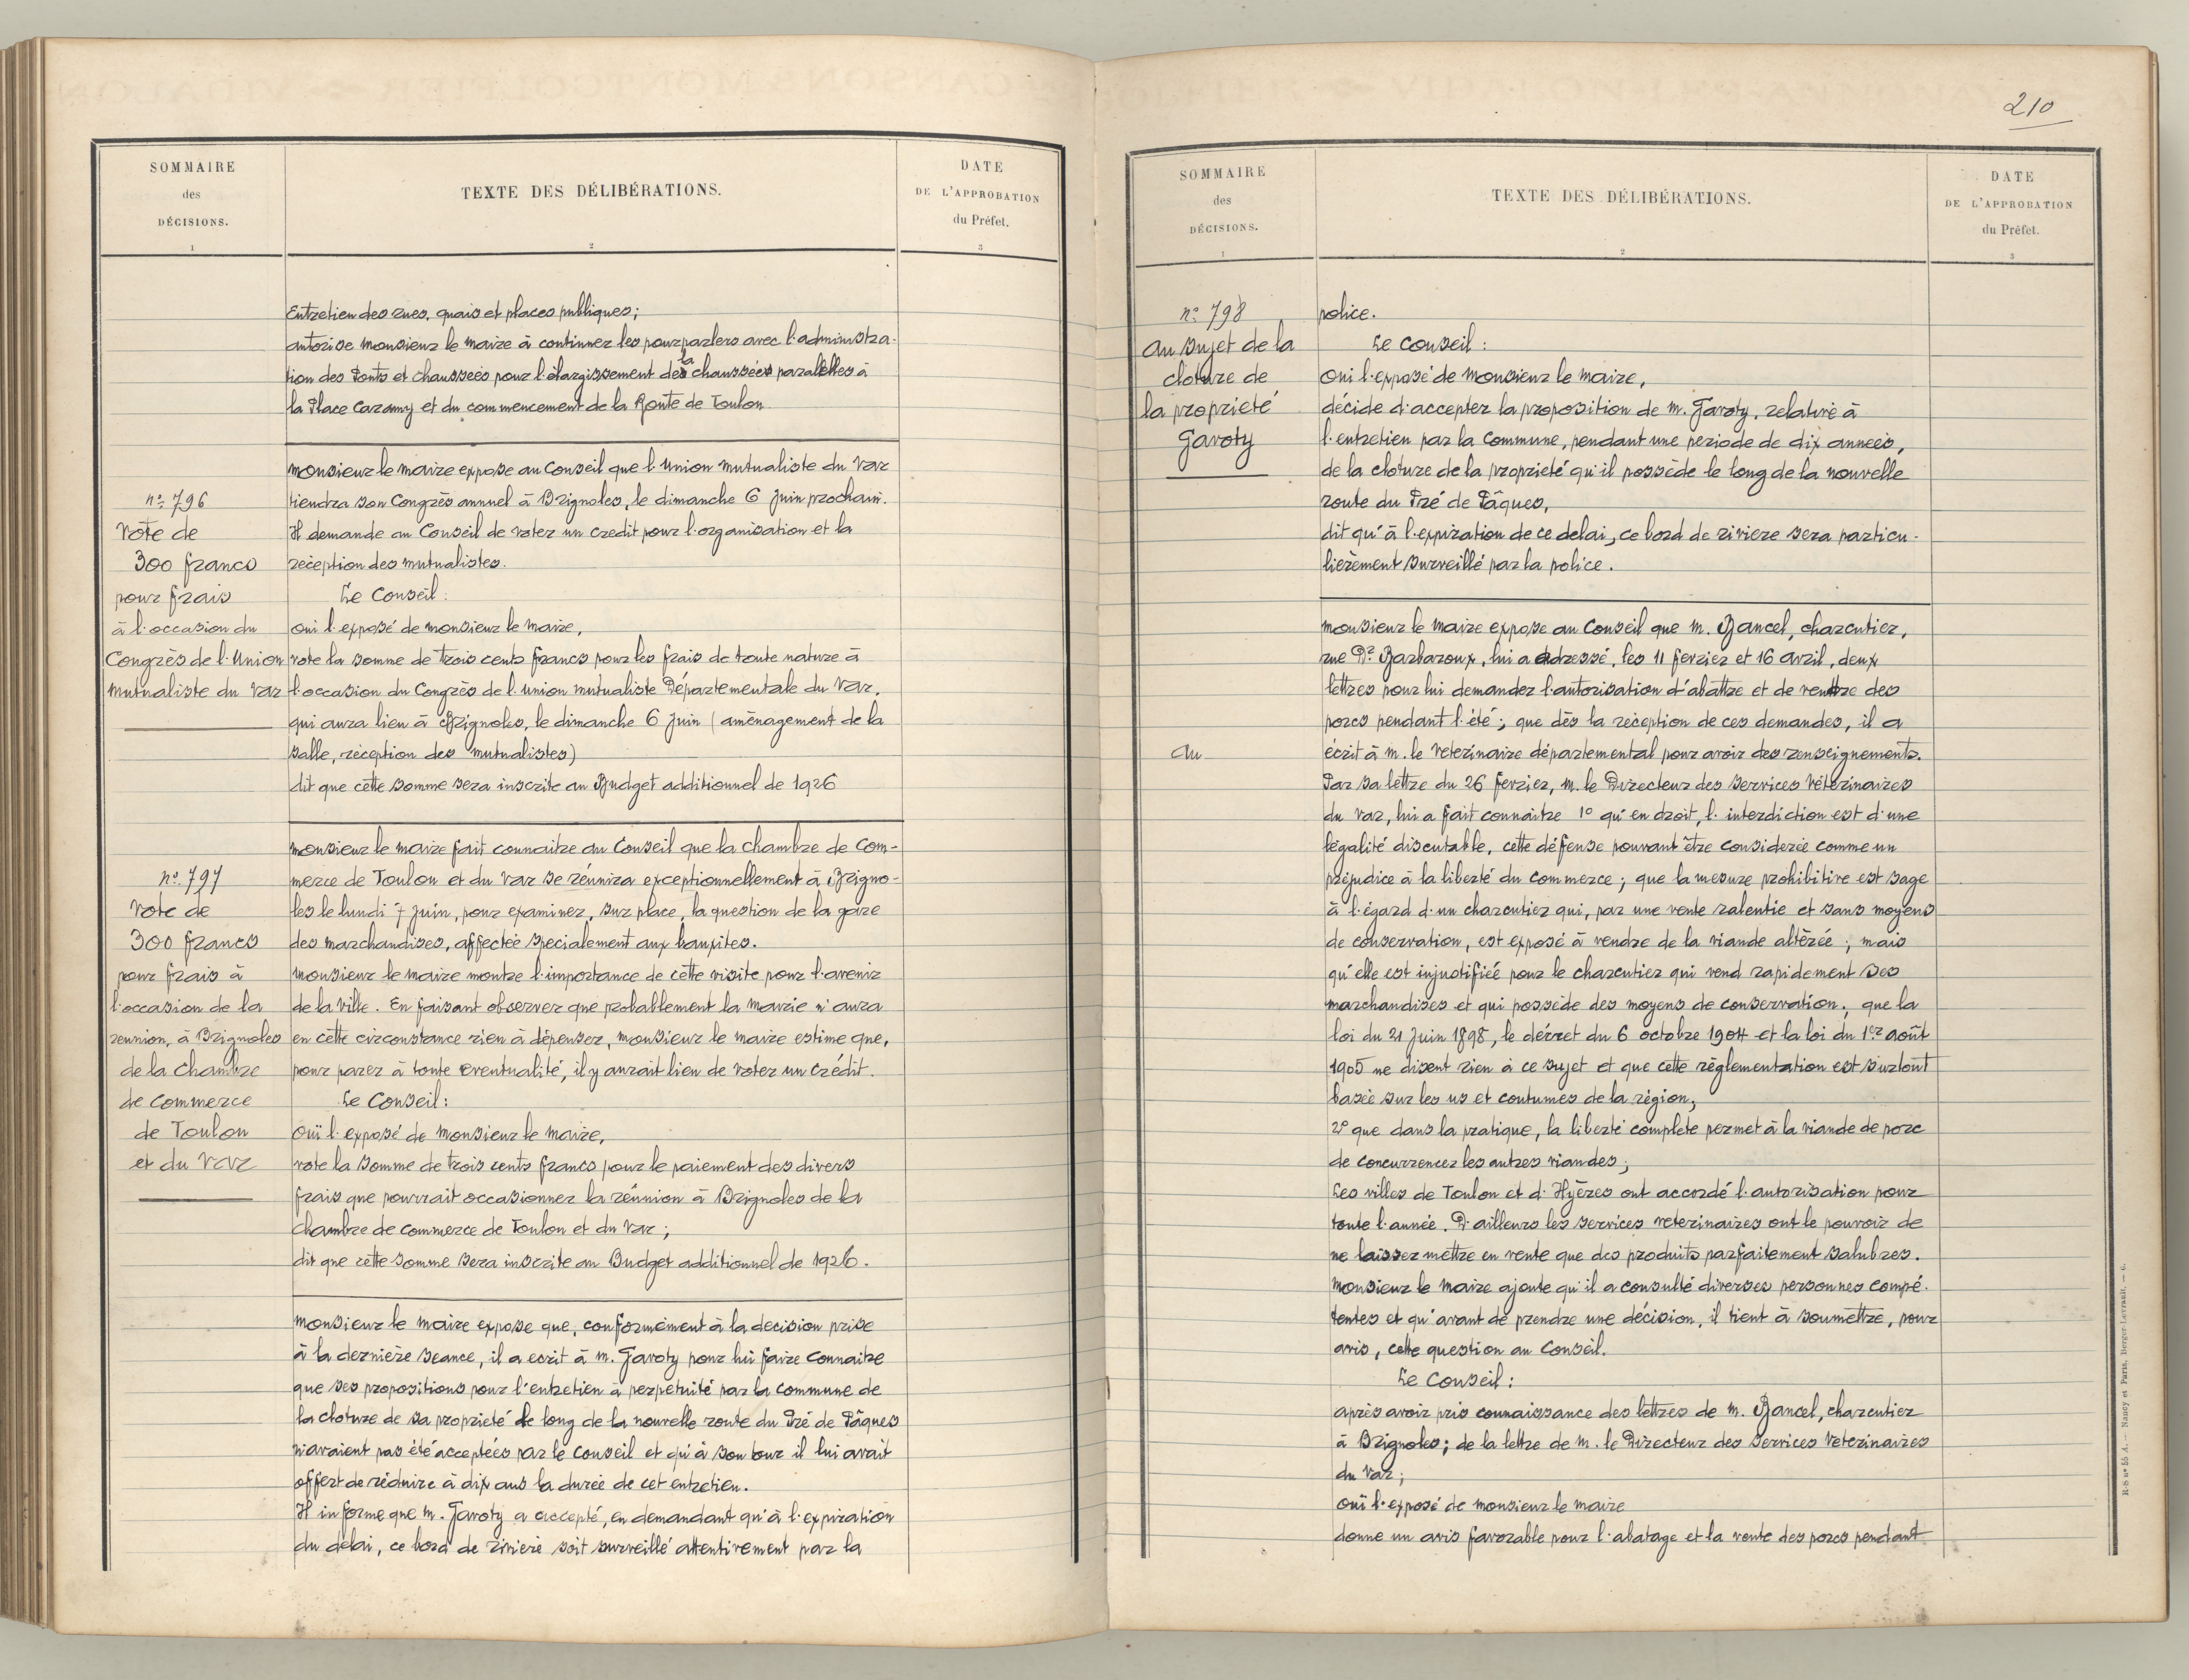 SOMMAIRE
des
DÉCISIONS.
1
TEXTE DES DÉLIBÉRATIONS.
2
DATE
DE L'APPROBATION
du Préfet.
3
Entretien des rues, quais et places publiques;
autorise Monsieur le Maire à continuer les pourparlers avec l'administra-
tion des Ponts et chaussées pour l'élargissement de la chaussée parallèlles à
la Place Caramy et du commencement de la Route de Toulon
n° 796
Vote de
300 francs
pour frais
à l'occasion du
Congrès de l'Union
Mutualiste du Var
Monsieur le Maire expose au Conseil que l'Union Mutualiste du Var
tiendra son Congrès annuel à Brignoles, le dimanche 6 Juin prochain.
Il demande au Conseil de voter un credit pour l'organisation et la
réception des mutualistes.
Le Conseil:
oui l'exposé de Monsieur le Maire,
vote la somme de trois cents francs pour les frais de toute nature à
l'occasion du Congrès de l'Union Mutualiste Départementale du Var,
qui aura lieu à Brignoles, le dimanche 6 Juin (aménagement de la
salle, réception des mutualistes)
dit que cette somme sera inscrite au Budget additionnel de 1926
n° 797
Vote de
300 francs
pour frais à
l'occasion de la
reunion, à Brignoles
de la Chambre
de Commerce
de Toulon
et du Var
Monsieur le Maire fait connaitre au Conseil que la Chambre de Com-
merce de Toulon et du Var se réunira exceptionnellement à Brigno-
les le lundi 7 Juin, pour examiner, sur place, la question de la gare
des marchandises, affectée specialement aux bauxites.
Monsieur le Maire montre l'importance de cette visite pour l'avenir
de la Ville. En faisant observer que probablement la Mairie n'aura
en cette circonstance rien à dépenser, Monsieur le Maire estime que,
pour parer à toute eventualité, il y aurait lieu de voter un crédit.
Le Conseil:
Ouï l'exposé de Monsieur le Maire,
vote la somme de trois cents francs pour le paiement des divers
frais que pourrait occasionner la réunion à Brignoles de la
Chambre de Commerce de Toulon et du Var;
dit que cette somme sera inscrite au Budget additionnel de 1926.
Monsieur le Maire expose que, conformément à la decision prise
à la dernière seance, il a ecrit à M. Garoty pour lui faire connaitre
que ses propositions pour l'entretien à perpetuité par la commune de
la cloture de sa proprieté le long de la nouvelle route du Pré de Pâques
n'avaient pas été acceptées par le Conseil et qu'à son tour il lui avait
offert de réduire à dix ans la durée de cet entretien.
Il informe que M. Garoty a accepté, en demandant qu'à l'expiration
du delai, ce bord de riviere soit surveillé attentivement par la
210
SOMMAIRE
des
DÉCISIONS.
1
TEXTE DES DÉLIBÉRATIONS.
2
DATE
DE L'APPROBATION
du Préfet.
3
n° 798
Au sujet de la
cloture de
la proprieté
Garoty
police.
Le Conseil:
Oui l'exposé de Monsieur le Maire,
décide d'accepter la proposition de M. Garoty, relative à
l'entretien par la Commune, pendant une periode de dix années,
de la cloture de la proprieté qu'il possède le long de la nouvelle
route du Pré de Pâques,
dit qu'à l'expiration de ce delai, ce bord de riviere sera particu-
lièrement surveillé par la police.
Au
Monsieur le Maire expose au Conseil que M. Bancel, charcutier,
rue Dr Barbaroux, lui a adressé, les 11 fevrier et 16 avril, deux
lettres pour lui demander l'autorisation d'abattre et de vendre des
porcs pendant l'été; que dès la réception de ces demandes, il a
écrit à M. le Veterinaire départemental pour avoir des renseignements.
Par sa lettre du 26 fevrier, M. le Directeur des Services Vétérinaires
du Var, lui a fait connaitre 1° qu'en droit, l'interdiction est d'une
légalité discutable, cette défense pouvant être considerée comme un
préjudice à la liberté du commerce; que la mesure prohibitive est sage
à l'égard d'un charcutier qui, par une vente ralentie et sans moyens
de conservation, est exposé à vendre de la viande altérée; mais
qu'elle est injustifiée pour le charcutier qui vend rapidement ses
marchandises et qui possède des moyens de conservation; que la
loi du 21 Juin 1898, le décret du 6 octobre 1904 et la loi du 1er août
1905 ne disent rien à ce sujet et que cette réglementation est surtout
basée sur les us et coutumes de la région;
2° que dans la pratique, la liberté complete permet à la viande de porc
de concurrencer les autres viandes;
Les villes de Toulon et d'Hyères ont accordé l'autorisation pour
toute l'année. D'ailleurs les services veterinaires ont le pouvoir de
ne laisser mettre en vente que des produits parfaitement salubres.
Monsieur le Maire ajoute qu'il a consulté diverses personnes compé-
tentes et qu'avant de prendre une décision, il tient à soumettre, pour
avis, cette question au Conseil.
Le Conseil:
après avoir pris connaissance des lettres de M. Bancel, charcutier
à Brignoles; de la lettre de M. le Directeur des Services Veterinaires
du Var;
ouï l'exposé de Monsieur le Maire
donne un avis favorable pour l'abatage et la vente des porcs pendant
R-S n° 55 A. — Nancy et Paris, Berger-Levrault. — 6.